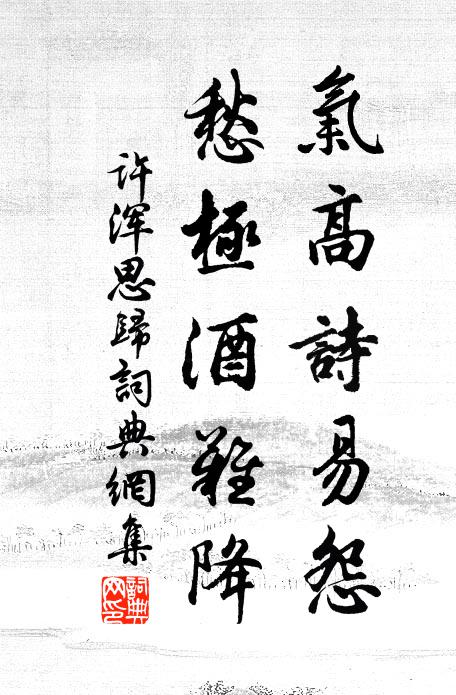 氣高詩易怨
愁極酒難降
许渾思歸詞典網集
詞典
网印